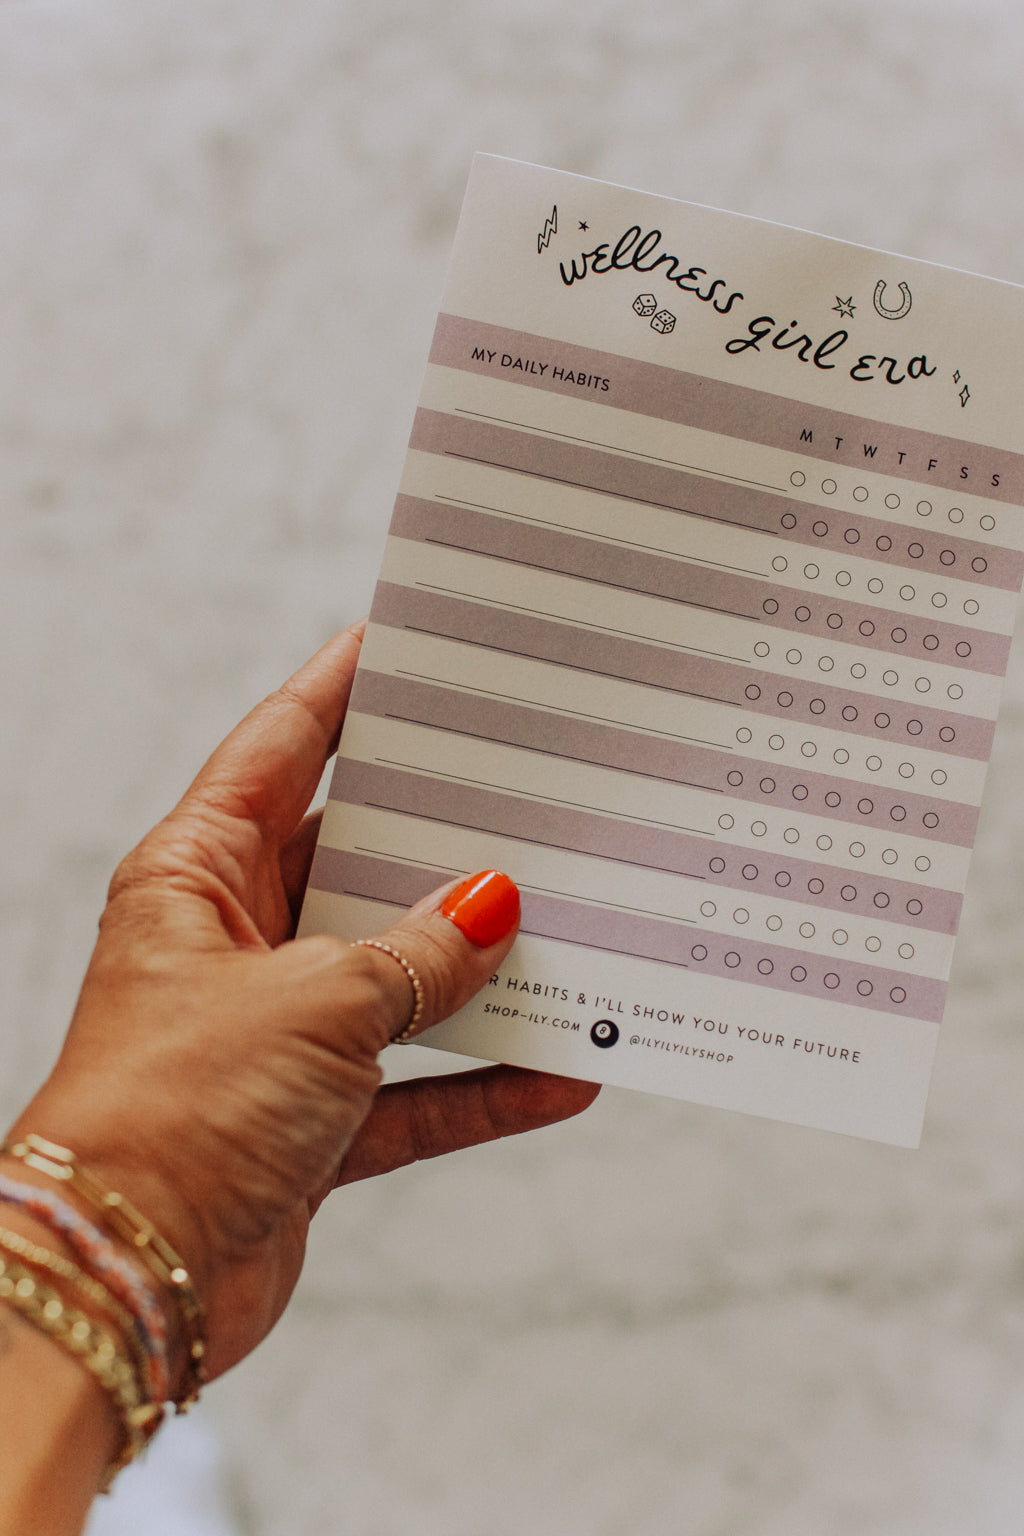 wellness girl era
MY DAILY HABITS
M T W T F S S
HABITS & I'LL SHOW YOU YOUR FUTURE
SHOP-ILY.COM 8 @ILYILYILYSHOP